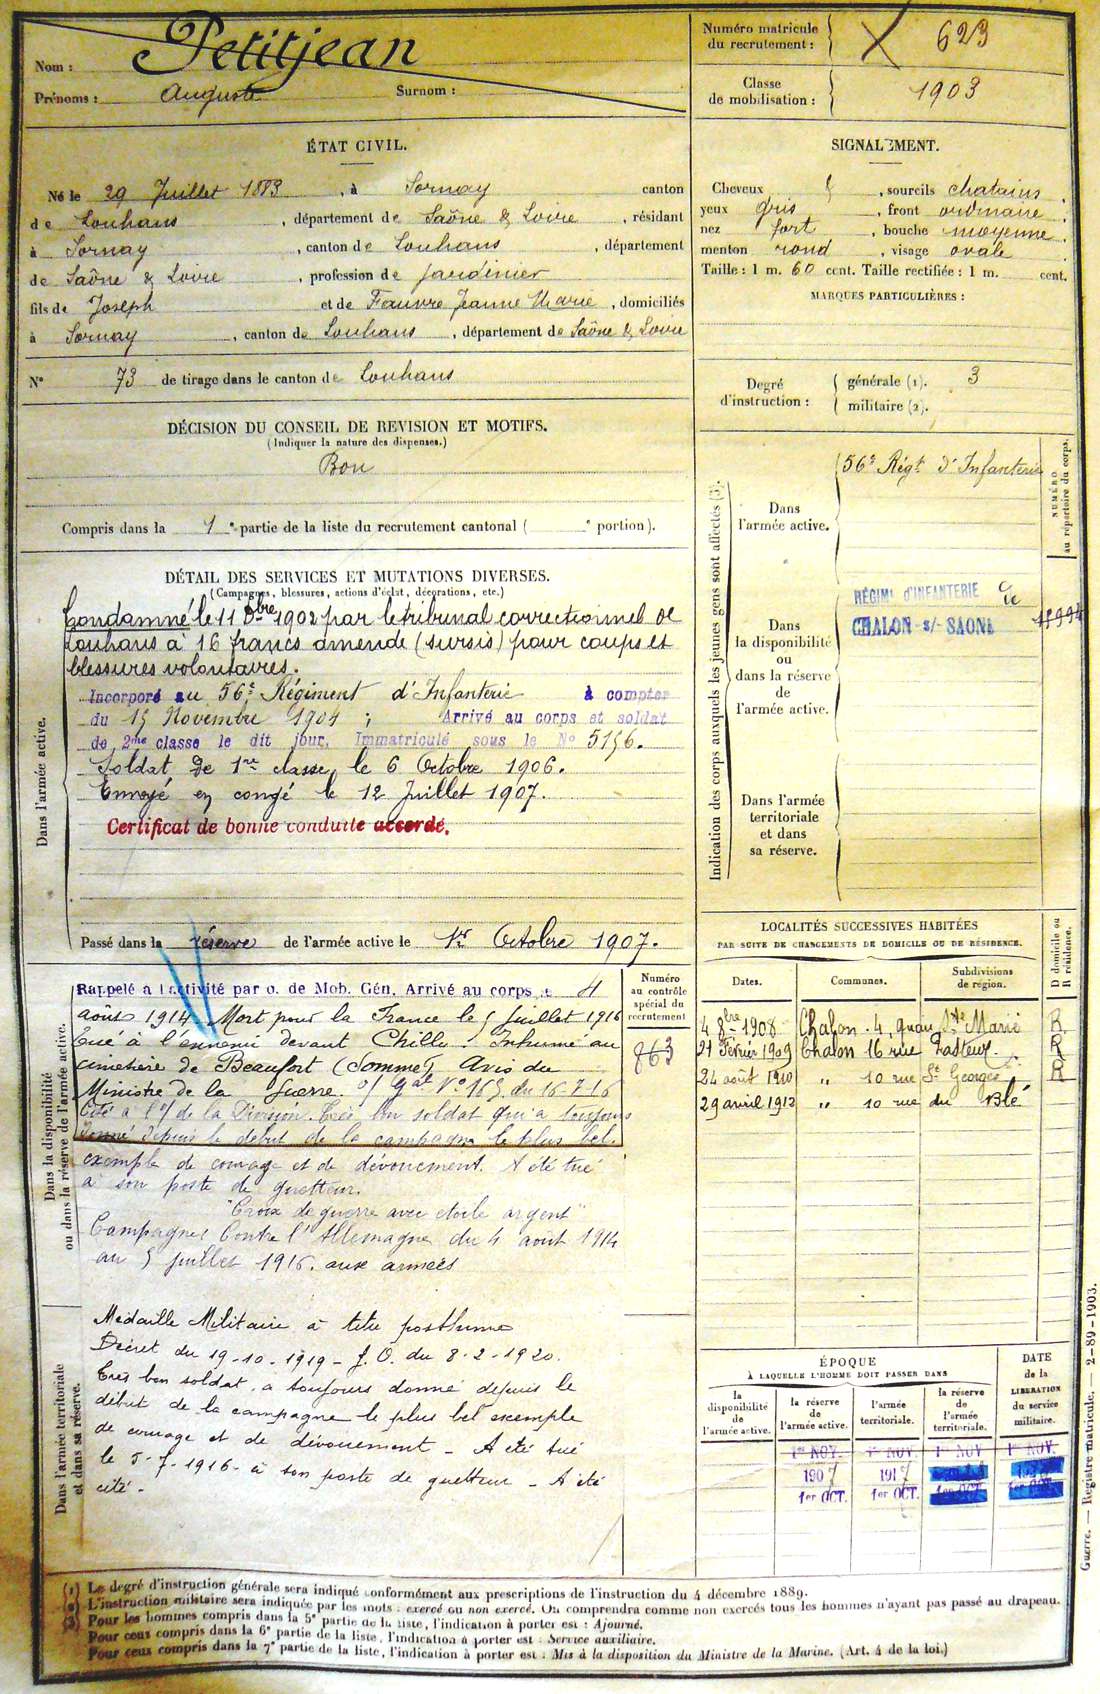 Nom : Petitjean
Prénoms : Auguste Surnom :
Numéro matricule
du recrutement : 623
Classe
de mobilisation : 1903
ÉTAT CIVIL.
Né le 29 Juillet 1883, à Sornay canton
de Louhans, département de Saône & Loire, résidant
à Sornay, canton de Louhans, département
de Saône & Loire, profession de jardinier
fils de Joseph et de Fauvre Jeanne Marie, domiciliés
à Sornay, canton de Louhans, département de Saône & Loire
N° 73 de tirage dans le canton de Louhans
SIGNALEMENT.
Cheveux , sourcils chatains,
yeux gris, front ordinaire,
nez fort, bouche moyenne,
menton rond, visage ovale.
Taille : 1 m. 60 cent. Taille rectifiée : 1 m. cent.
MARQUES PARTICULIÈRES :
Degré
d'instruction :
générale (1). 3
militaire (2).
DÉCISION DU CONSEIL DE REVISION ET MOTIFS.
(Indiquer la nature des dispenses.)
Bon
Compris dans la 1e partie de la liste du recrutement cantonal ( e portion).
Indication des corps auxquels les jeunes gens sont affectés (3).
Dans
l'armée active.
56e Régt d'Infanterie
NUMÉRO
au répertoire du corps.
Dans
la disponibilité
ou
dans la réserve
de
l'armée active.
RÉGIMt D'INFANTERIE
CHALON-s/-SAONE
Dans l'armée
territoriale
et dans
sa réserve.
DÉTAIL DES SERVICES ET MUTATIONS DIVERSES.
(Campagnes, blessures, actions d'éclat, décorations, etc.)
Dans l'armée active.
Condamné le 11 Xbre 1902 par le tribunal correctionnel de
Louhans à 16 francs amende (sursis) pour coups et
blessures volontaires.
Incorporé au 56e Régiment d'Infanterie à compter
du 15 Novembre 1904 ; Arrivé au corps et soldat
de 2me classe le dit jour. Immatriculé sous le No 5156.
Soldat de 1re classe le 6 Octobre 1906.
Envoyé en congé le 12 Juillet 1907.
Certificat de bonne conduite accordé.
Passé dans la réserve de l'armée active le 1er Octobre 1907.
Dans la disponibilité
ou dans la réserve de l'armée active.
Numéro
au contrôle
spécial du
recrutement
863
Rappelé à l'activité par o. de Mob. Gén. Arrivé au corps le 4
août 1914 Mort pour la France le 5 Juillet 1916
Tué à l'ennemi devant Chilly. Inhumé au
cimetière de Beaufort (Somme) Avis du
Ministre de la Guerre No 165 du 16-7-16
Cité à l'o/ de la Division. Très bon soldat qui a toujours
donné depuis le début de la campagne le plus bel
exemple de courage et de dévouement. A été tué
à son poste de guetteur.
"Croix de guerre avec étoile argent"
Campagnes Contre l'Allemagne du 4 août 1914
au 5 juillet 1916. aux armées
Dans l'armée territoriale
et dans sa réserve.
Médaille Militaire à titre posthume
Décret du 19-10-1919 - J. O. du 8-2-1920.
Très bon soldat. a toujours donné depuis le
début de la campagne le plus bel exemple
de courage et de dévouement - A été tué
le 5-7-1916 - à son poste de guetteur - A été
cité -
LOCALITÉS SUCCESSIVES HABITÉES
PAR SUITE DE CHANGEMENTS DE DOMICILE OU DE RÉSIDENCE.
Dates. Communes. Subdivisions
de région.
D domicile ou
R résidence.
4 8bre 1908 Chalon. 4, quai Ste Marie R
21 Février 1909 Chalon 16 rue Pasteur R
24 août 1910 " 10 rue St Georges R
29 avril 1912 " 10 rue du Blé
ÉPOQUE
À LAQUELLE L'HOMME DOIT PASSER DANS
la
disponibilité
de
l'armée active.
la réserve
de
l'armée active.
l'armée
territoriale.
la réserve
de
l'armée
territoriale.
DATE
de la
LIBÉRATION
du service
militaire.
1er NOV. 1er NOV. 1er NOV 1er NOV.
1907 1917
1er OCT. 1er OCT. 1er OCT. 1er OCT.
(1) Le degré d'instruction générale sera indiqué conformément aux prescriptions de l'instruction du 4 décembre 1889.
(2) L'instruction militaire sera indiquée par les mots : exercé ou non exercé. On comprendra comme non exercés tous les hommes n'ayant pas passé au drapeau.
(3) Pour les hommes compris dans la 5e partie de la liste, l'indication à porter est : Ajourné.
Pour ceux compris dans la 6e partie de la liste, l'indication à porter est : Service auxiliaire.
Pour ceux compris dans la 7e partie de la liste, l'indication à porter est : Mis à la disposition du Ministre de la Marine. (Art. 4 de la loi.)
Guerre. — Registre matricule. — 2-89-1903.